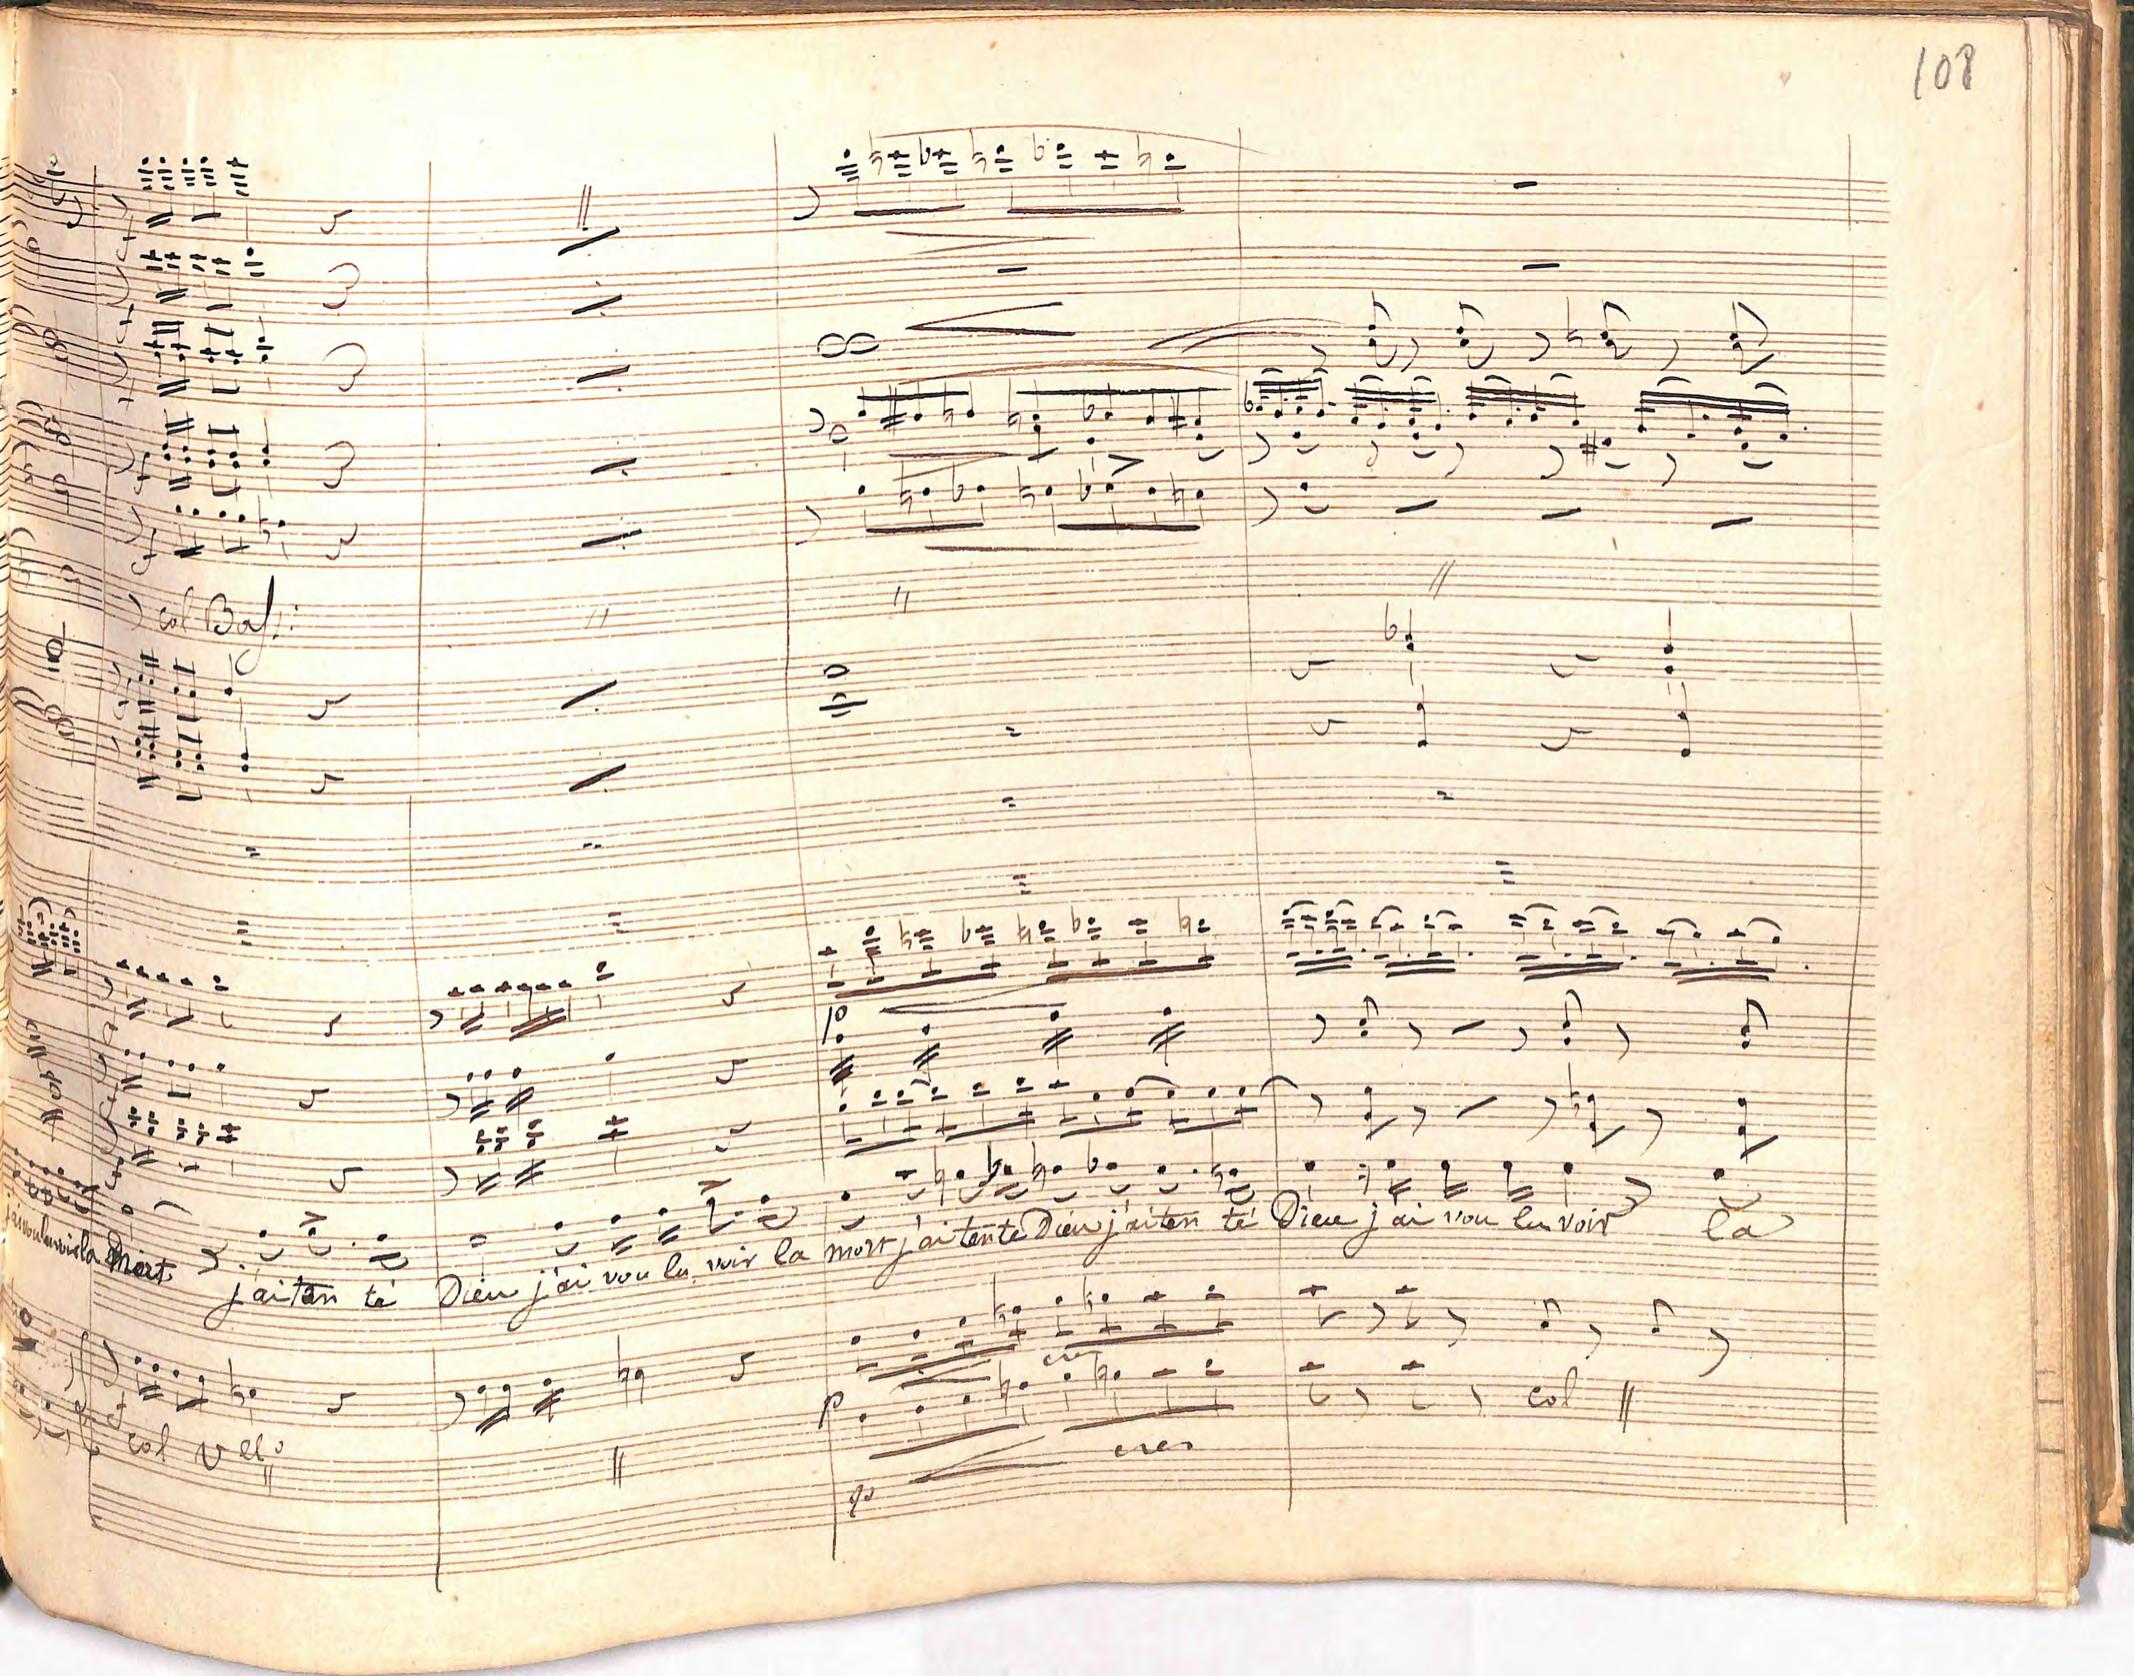 108
col Bass:
j'ai voulu voir la Mort j'ai ten té Dieu j'ai vou lu voir la mort j'ai tenté Dieu j'ai ten té Dieu j'ai vou lu voir la
cres
p
col
col vello
cres